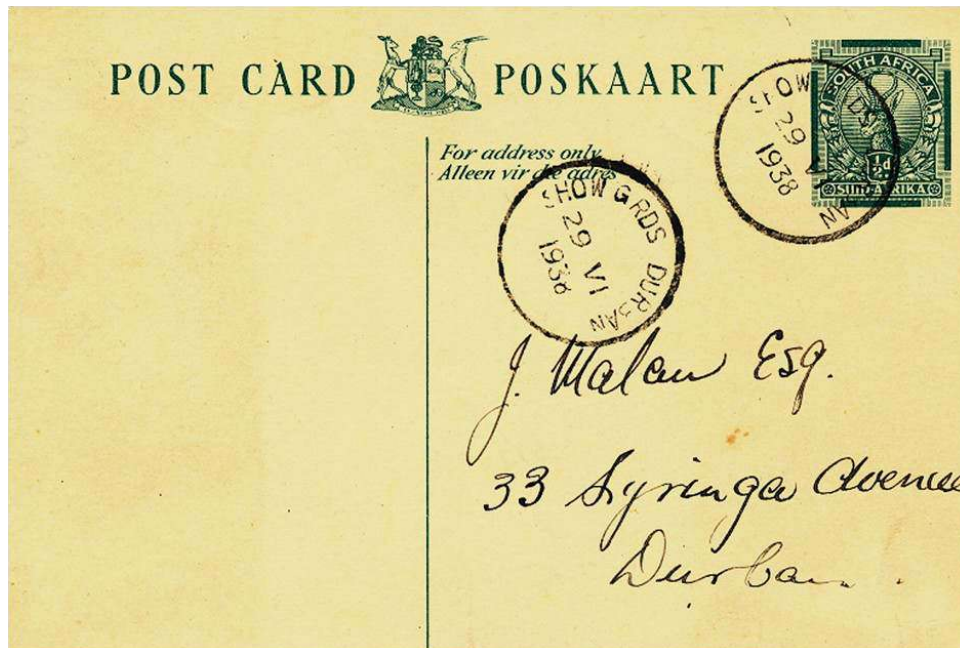 POST CARD POSKAART
SOUTH AFRICA
½d
SUID-AFRIKA
SHOW DS AN
29 V
1938
For address only
Alleen vir die adres
SHOW GRDS DURBAN
29 VI
1938
J. Malan Esq.
33 Syringa Avenue
Durban.